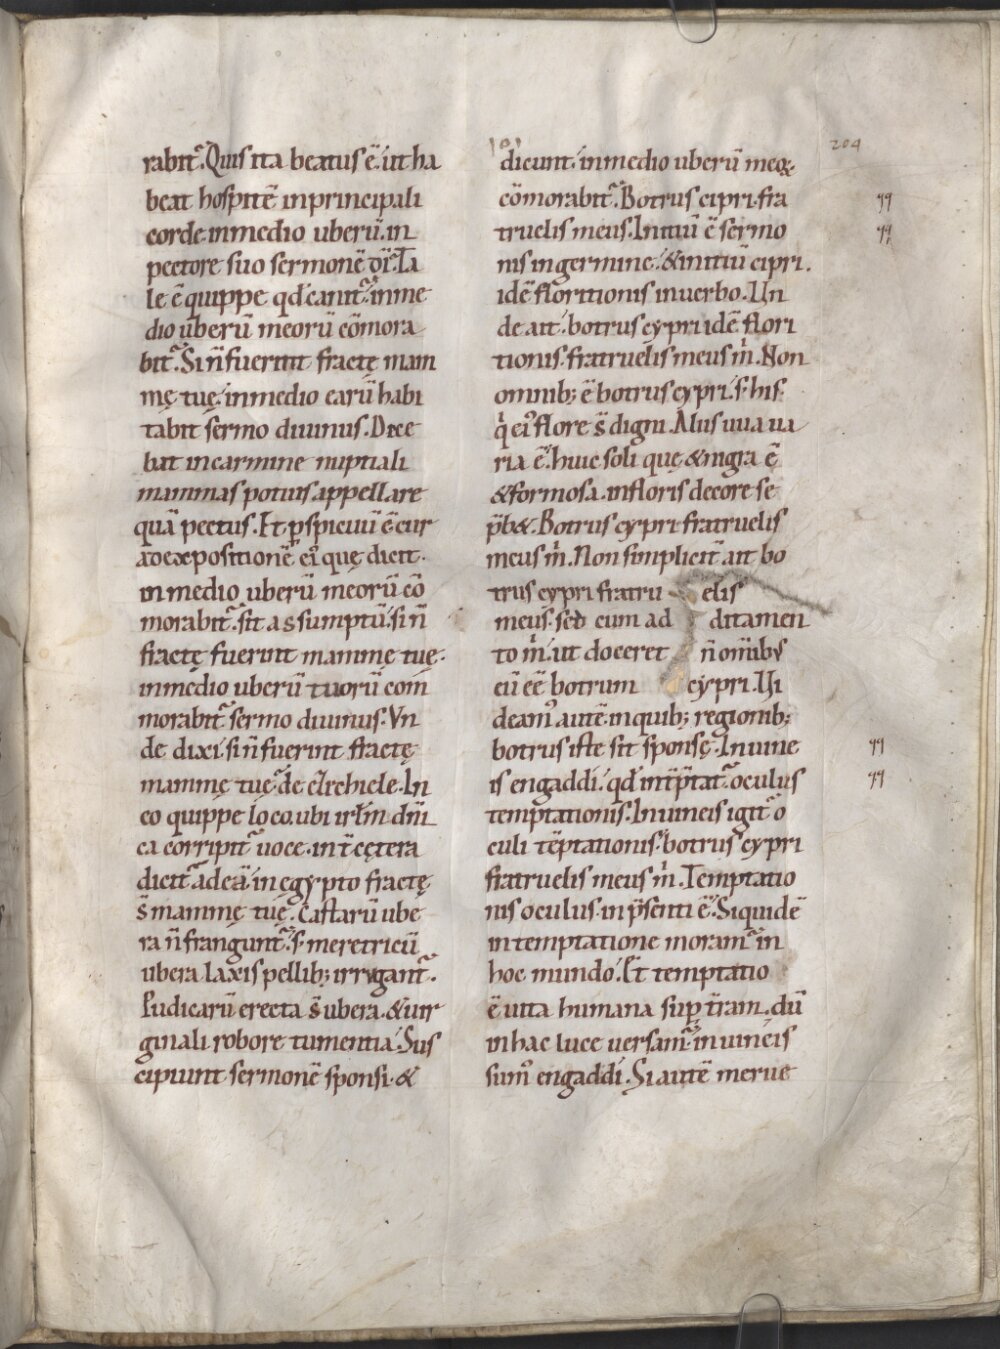 204
rabit᷑. Quis ita beatus ē. ut ha
beat hospitē in principali
corde. in medio uberū. in
pectore suo sermonē dī. Ta
le ē quippe qđ canit᷑. in me
dio uberū meorū cōmora
bit᷑. Si ñ fuerint fractę mam
mę tuę. in medio earū habi
tabit sermo diuinus. Dice
bat in carmine nuptiali
mammas potius appellare
quā pectus. Et ꝑspicuū ē cur
ad expositionē eiꝰ quę dicit.
in medio uberū meorū cō
morabit᷑. sit assumptū. si ñ
fractę fuerint mammę tuę.
in medio uberū tuorū com̄
morabit᷑ sermo diuinus. Vn
de dixi si ñ fuerint fractę
mammę tuę. de
eo quippe loco. ubi irłm dn̄i
ca corripit᷑ uoce. int̄ cętera
dicit᷑ ad eā. in ęgypto fractę
s̄ mammę tuę. Castarū ube
ra ñ frangunt᷑. s; meretricū
ubera laxis pellib; irrygant᷑.
Pudicarū erecta s̄ ubera. & uir
ginali robore tumentia. Sus
cipiunt sermonē sponsi. &
dicunt. in medio uberū meoꝝ
cōmorabit᷑. Botrus cipri. fra
truelis meus. Initiū ē sermo
nis in germine. & initiū cipri.
idē floritionis in uerbo. Un
de ait. botrus cypri idē flori
tionis. fratruelis meus m̍. Non
omnib; ē botrus cypri. s; his
q̍ eiꝰ flore s̄ digni. Aliis uua ua
ria ē. huic soli quę & nigra ē
& formosa. in floris decore se
p̄b&. Botrus cypri fratruelis
meus m̍. Non simplicit̄ ait bo
trus cypri fratru elis
meus. sed cum ad ditamen
to m̍. ut doceret ñ omībꝰ
eū eē botrum cypri. Ui
deamꝰ autē in quib; regionib;
botrus iste sit sponsę. In uine
is engaddi. qđ int̄p̄tat᷑. oculus
temptationis. In uineis igit᷑ o
culi tēptationis. botrus cypri
fratruelis meus m̍. Temptatio
nis oculus. in p̄senti ē. Siquidē
in temptatione moram᷑ in
hoc mundo. Et temptatio
ē uita humana sup t̄ram. dū
in hac luce uersam᷑. in uineis
sumꝰ engaddi. Si autē merue